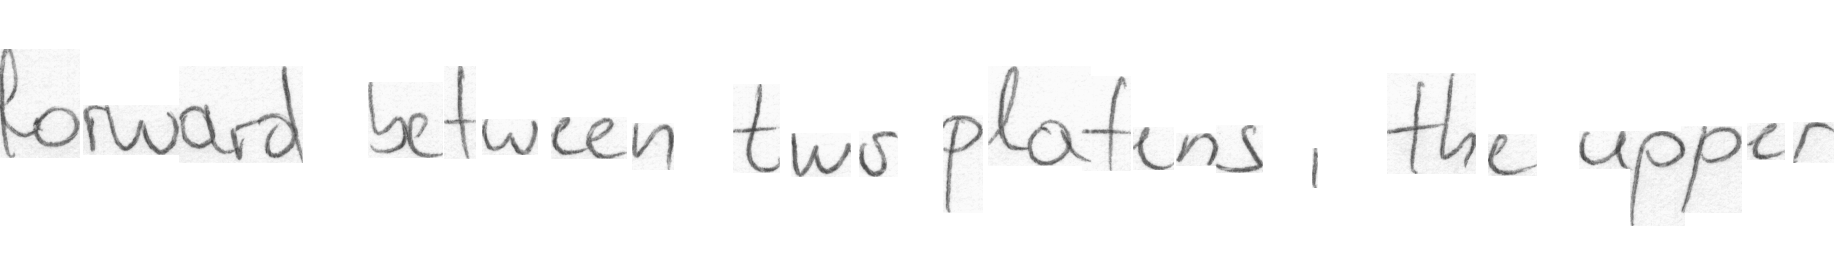 forward between two platens, the upper